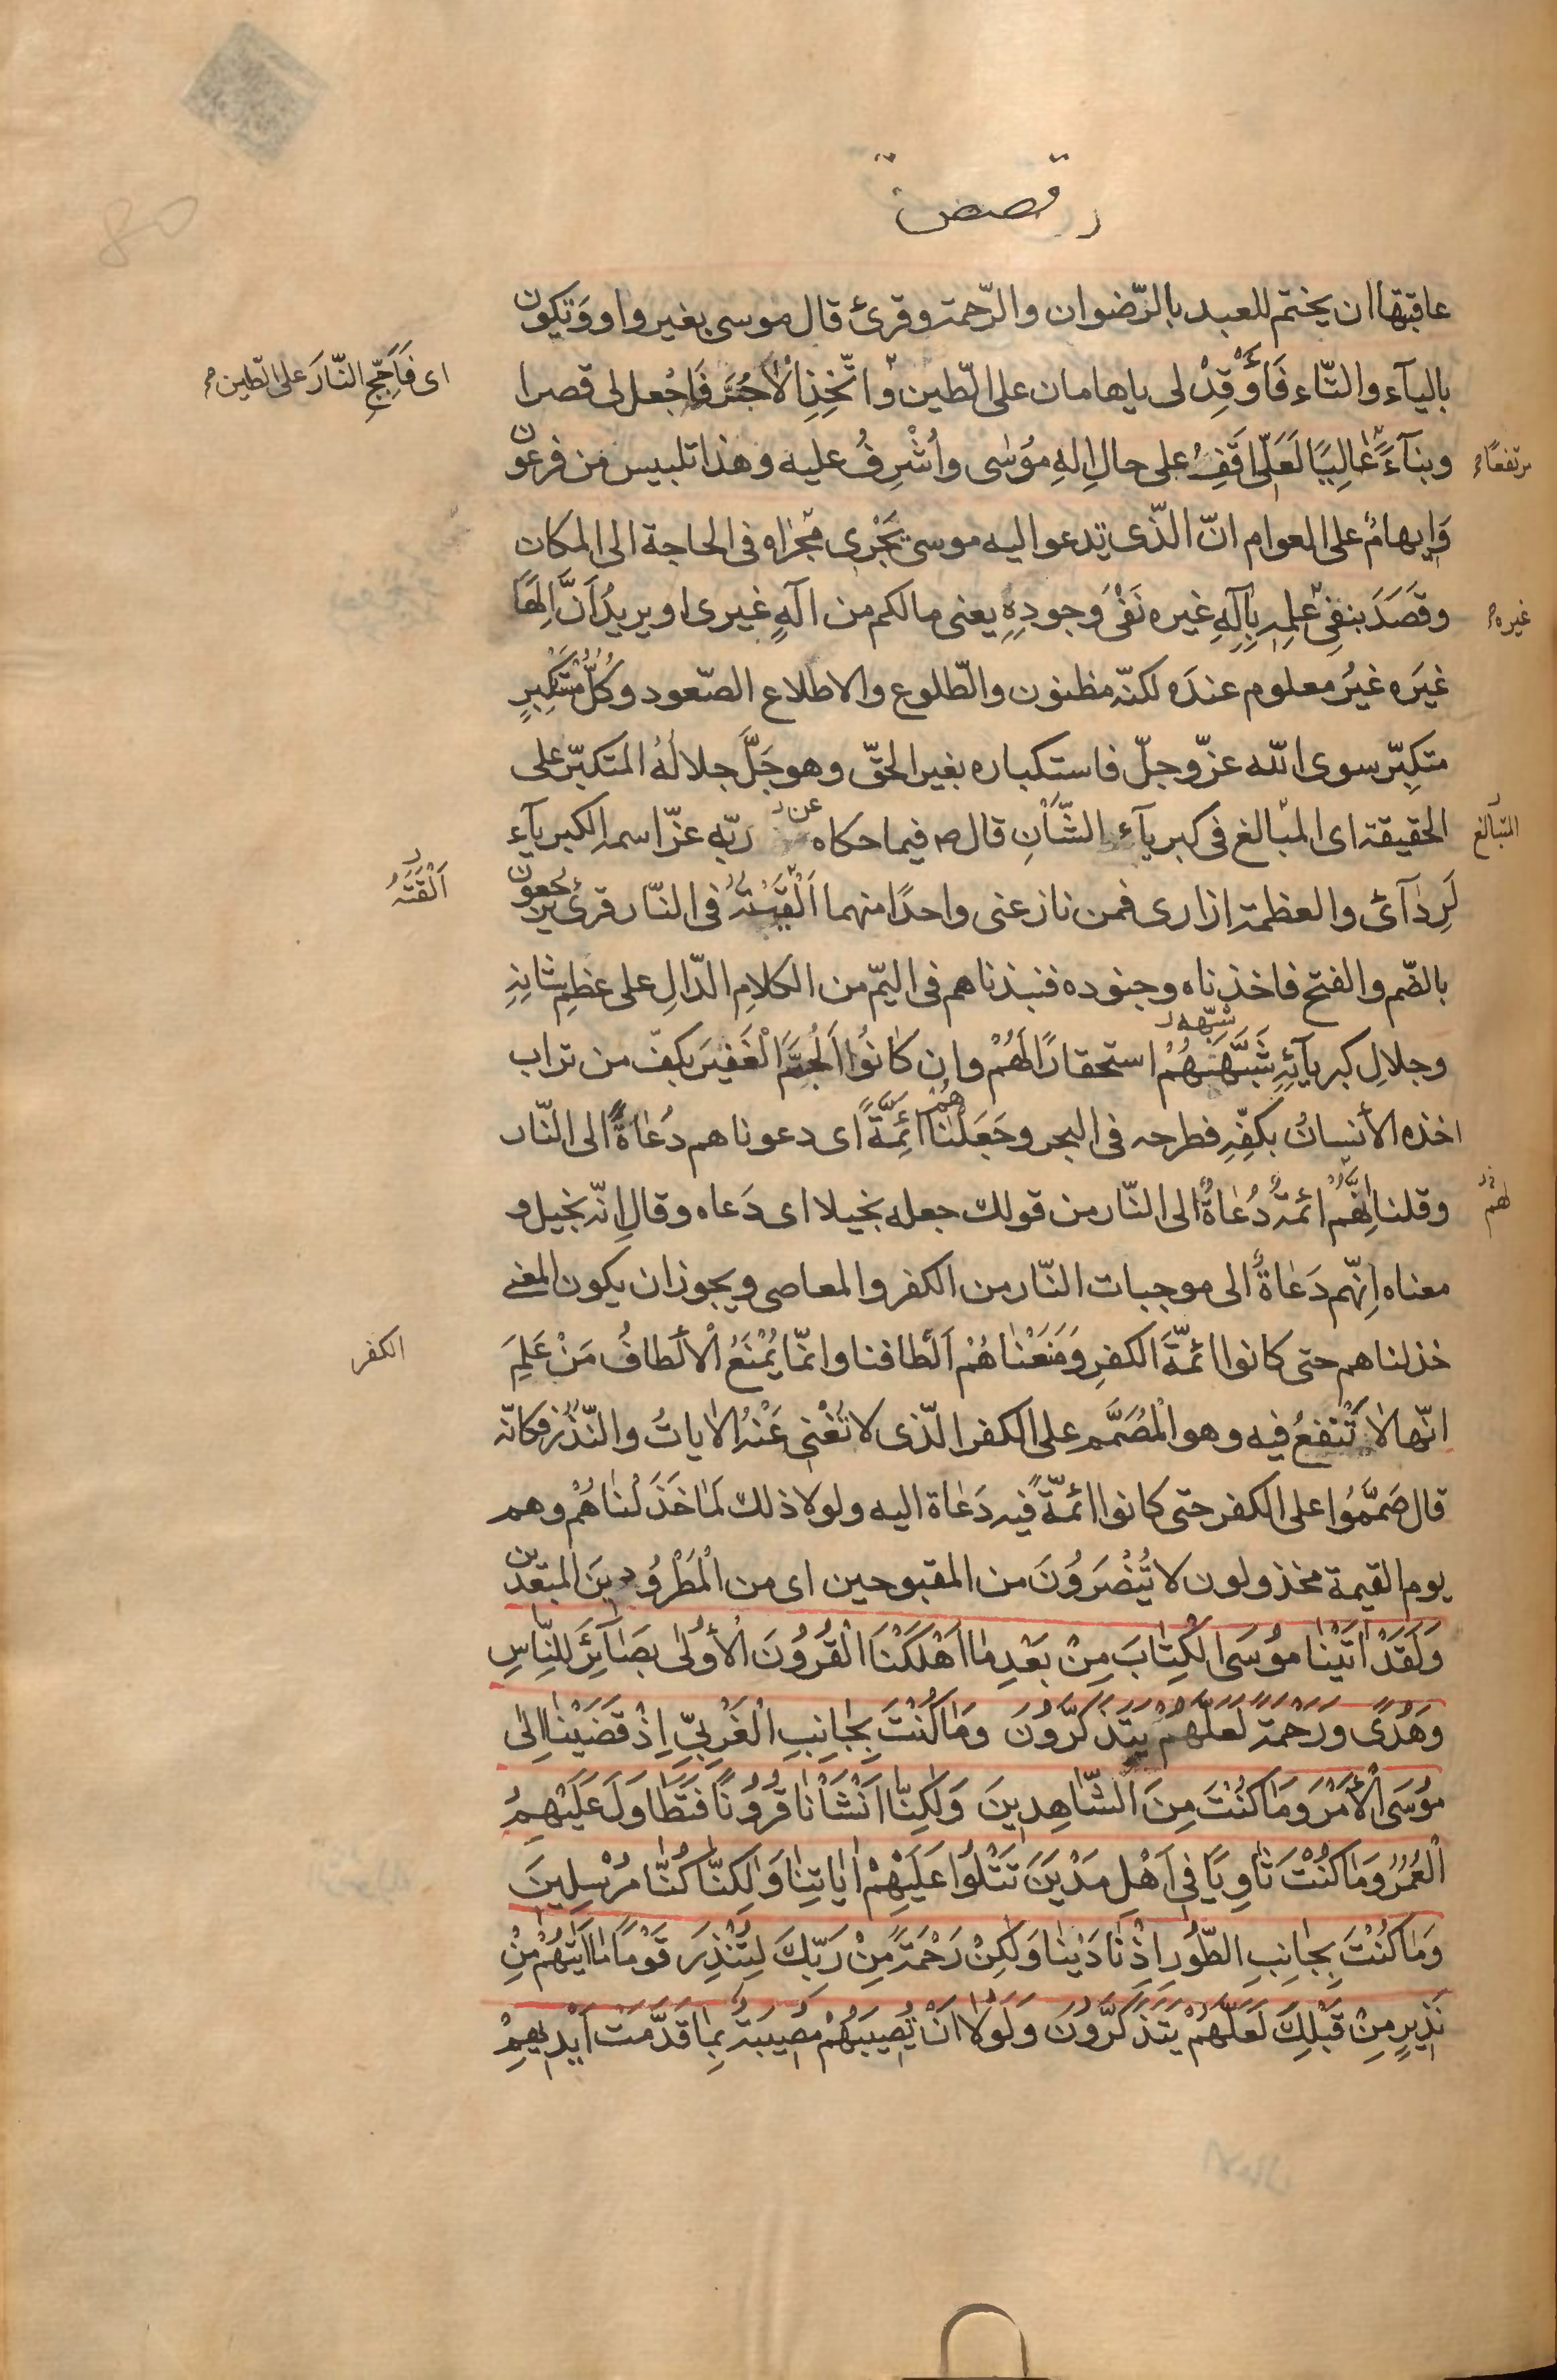 قصص
عاقبتها ان يختم للعبد بالرّضوان والرّحمة وقرئ قال موسى بغير واو وَتكون
باليآء والتّاء فَأَوْقِدْ لى ياهامان على الطّين وَاتَّخِذِ الْآجُرَّ فَاجْعل لى قصرا
اى فَأَجِّجِ النّارَ على الطين
وبنآءً عَالِيًا لَعَلّى اَقِفُ على حالِ اِلهِ مُوسٰى وأُشْرِفُ عليه وهذا تلبيس من فرعون
مرتفعًا
وَإيهامٌ على العوام انّ الّذى يدعوا اليه موسى يَجْرى مَجْراه فى الحاجة الى المكان
وقَصَدَ بنفىِ عِلمِه بِاِلٰهٍ غيره نَفْىَ وجودِهِ يعنى مالكم من الٰهٍ غيرى او يريدُ اَنَّ اِلٰهًا
غيره
غيَره غيرُ معلوم عندَه لكنّه مظنون والطّلوع والاطلاع الصّعود وكُلُّ مُتَكَبِّرٍ
متكبّر سوى الله عزّ وجلّ فاستكباره بغير الحقّ وهو جَلَّ جلالُهُ المتكبّر على
الحقيقة اى المبٰالغ فى كبريآء الشّأنِ قال ص فيما حكاه عن ربّه عزّ اسمه الكبريآء
المتبالغ
لَرِدآئ والعظمة ازارى فمن نازعنى واحدًا منهما اَلْقَيْتُهُ فى النّار قرئ يرجعون
اَلْقَيْتُهُ
بالضّم والفتح فاخذناه وجنوده فنبذناهم فى اليمّ من الكلامِ الدّالِ على عظمِ شانِهِ
وجلالِ كبريآئِهِ شَبَّهَهُمْ استحقارًا لَهُمْ وان كٰانُوا الْجَمَّ الْغَفيرَ بكفّ من تراب
شبّهه
اخذه الأنسانُ بكفّهِ فطرحه فى البحر وجَعَلْنٰاهُمْ ائِمَّةً اى دعوناهم دُعٰاةً الى النّار
وقلنا اِنَّهُمْ ائمةٌ دُعٰاةٌ الى النّار من قولك جعله بخيلا اى دَعاه وقال اِنّه بخيل و
لهم
معناه اِنّهم دَعٰاةٌ الى موجبات النّار من الكفر والمعاصى ويجوز ان يكون المعنے
خذلناهم حتى كانوا ائمّةَ الكفرِ وَمَنَعْنٰاهُمْ اَلْطافنا وانمّا يُمْنَعُ الْألطافُ مَنْ عَلِمَ
الكفر
انّها لٰا تَنْفعُ فيه وهو الْمُصَمَّم على الكفر الّذى لا تُغْنى عَنْهُ الاٰياتُ والنّذُر فكانّه
قال صَمَّمُوا على الكفر حتى كانوا ائمّةً فيه دَعٰاة اليه ولولا ذلك لَمٰا خَذَلْناهُمْ وهم
يوم القيمة مخذولون لا يُنْصَرُونَ من المقبوحين اى من الْمَطْرُودينَ المبعّدين
وَلَقَدْ اٰتَيْنٰا مُوسَى الْكِتٰابَ مِنْ بَعْدِ مٰا اَهْلَكْنَا الْقُرُونَ الْأُولٰى بَصٰآئِرَ لِلنّاسِ
وَهُدًى وَرَحْمَةً لَعَلَّهُمْ يَتَذَكَّرُونَ وَمٰا كُنْتَ بِجٰانِبِ الْغَرْبِيِّ اِذْ قَضَيْنٰا اِلٰى
مُوسَى الْأَمْرَ وَمٰا كُنْتَ مِنَ الشّاهِدينَ وَلٰكِنّا اَنْشَأْنٰا قُرُونًا فَتَطٰاوَلَ عَلَيْهِمُ
الْعُمُرُ وَمٰا كُنْتَ ثٰاوِيًا فى اَهْلِ مَدْيَنَ تَتْلُوا عَلَيْهِمْ اٰيٰاتِنٰا وَلٰكِنّٰا كُنّٰا مُرْسِلينَ
وَمٰا كُنْتَ بِجٰانِبِ الطُّورِ اِذْ نٰادَيْنٰا وَلٰكِنْ رَحْمَةً مِنْ رَبِّكَ لِتُنْذِرَ قَوْمًا مٰا اَتٰيهُمْ مِنْ
نَذيرٍ مِنْ قَبْلِكَ لَعَلَّهُمْ يَتَذَكَّرُونَ وَلَوْلٰا اَنْ تُصيبَهُمْ مُصيبَةٌ بِمٰا قَدَّمَتْ اَيْديهِمْ